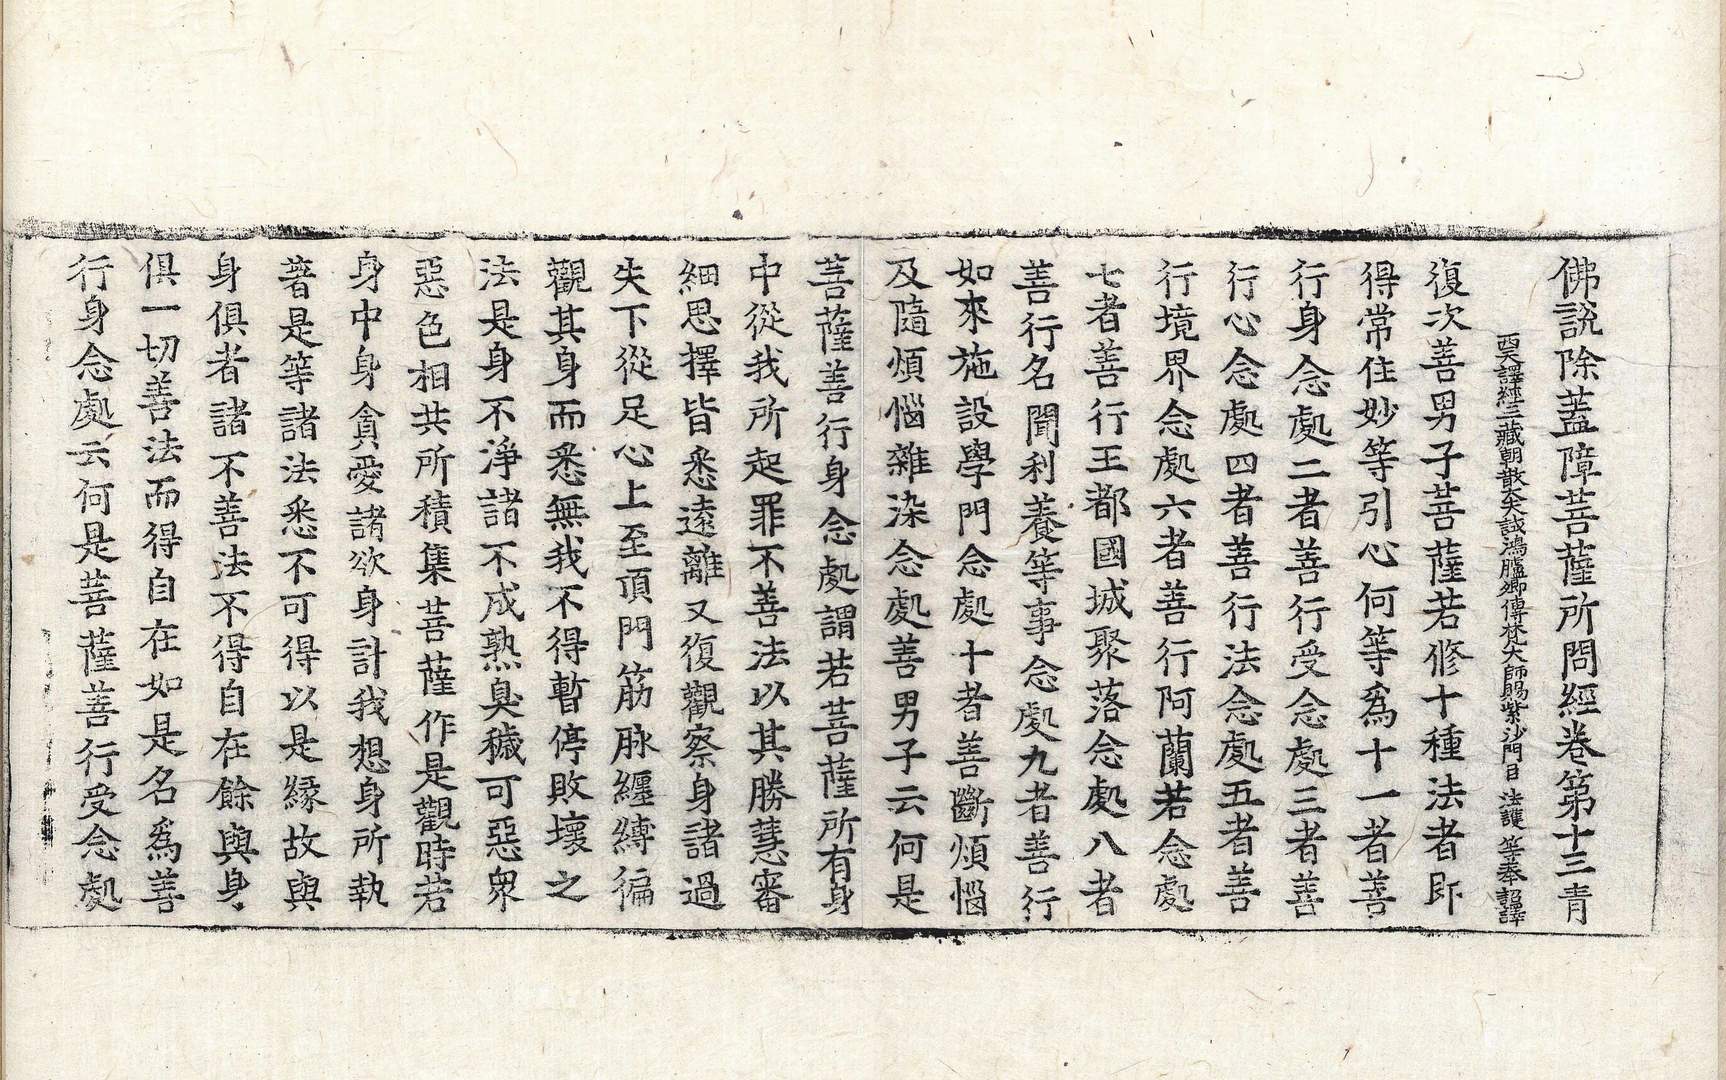 佛說除蓋障菩薩所問經卷第十三青
西天譯經三藏朝散大夫試鴻臚卿傳梵大師賜紫沙門臣 法護 等奉 詔譯
復次善男子菩薩若修十種法者即
得常住妙等引心何等爲十一者善
行身念處二者善行受念處三者善
行心念處四者善行法念處五者善
行境界念處六者善行阿蘭若念處
七者善行王都國城聚落念處八者
善行名聞利養等事念處九者善行
如來施設學門念處十者善斷煩惱
及隨煩惱雜染念處善男子云何是
菩薩善行身念處謂若菩薩所有身
中從我所起罪不善法以其勝慧審
細思擇皆悉遠離又復觀察身諸過
失下從足心上至頂門筋脉纏縛徧
觀其身而悉無我不得暫停敗壞之
法是身不淨諸不成熟臭穢可惡衆
惡色相共所積集菩薩作是觀時若
身中身貪愛諸欲身計我想身所執
著是等諸法悉不可得以是緣故與
身俱者諸不善法不得自在餘與身
俱一切善法而得自在如是名爲善
行身念處云何是菩薩善行受念處